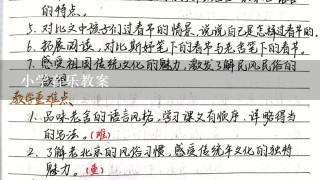 的特点。
5. 对比文中孩子们过春节的情景,说说自己是怎样过春节的。
6. 拓展阅读,对比斯好笔下的春节与老舍笔下的春节。
7. 感受祖国传统文化的魅力,激发了解民风民俗的
小学音乐教案
教学重难点
1. 品味老舍的语言风格,学习课文有顺序、详略得当
的写法。(难)
2. 了解老北京的风俗习惯,感受传统年文化的独特
魅力。(重)